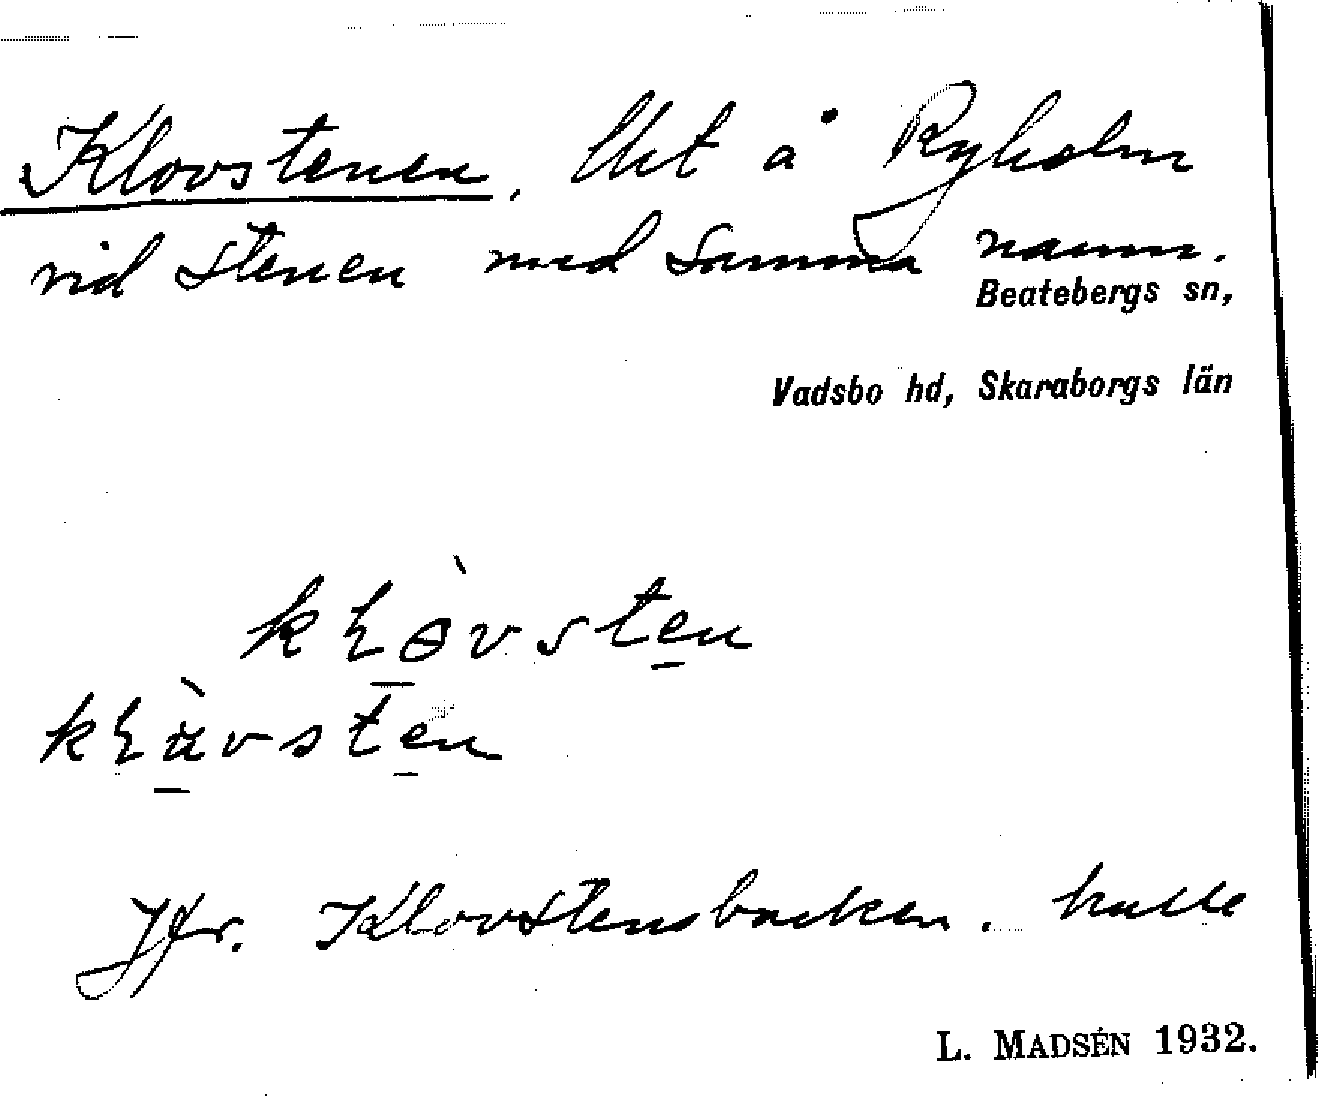 Klovstenen. lht å Ryholm
vid stenen med samma namn.
Beatebergs sn,
Vadsbo hd, Skaraborgs län
Jfr. Klovstensbacken. kulle
L. MADSÉN 1932.